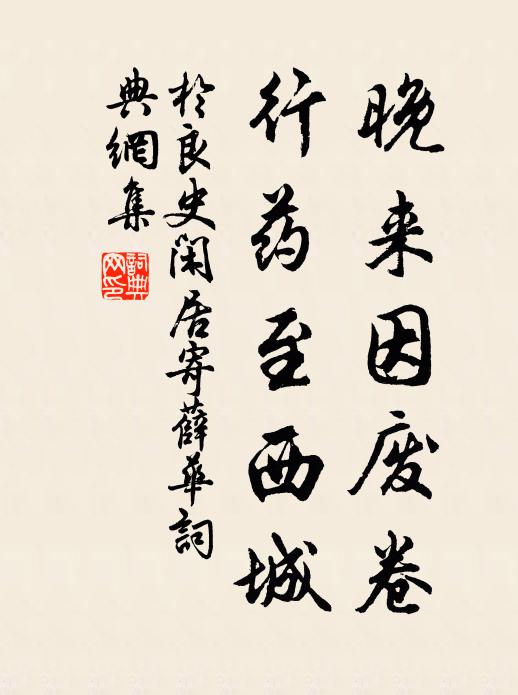 晚来因废卷
行药至西城
於良史闲居寄薛華詞
典網集
詞典网印